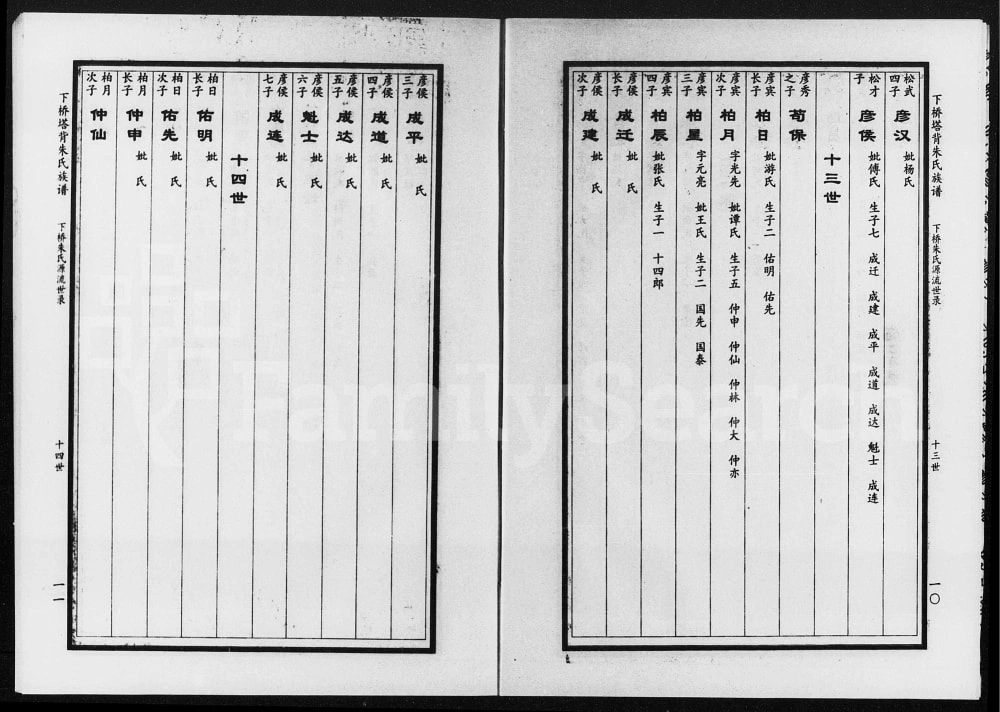 下桥塔背朱氏族谱 下桥朱氏源流世录 十三世 一〇
松武四子 彦汉 妣杨氏
松才子 彦侯 妣傅氏 生子七 成迁 成建 成平 成道 成达 魁士 成连
十三世
彦秀之子 苟保
彦宾长子 柏日 妣游氏 生子二 佑明 佑先
彦宾次子 柏月 字光先 妣谭氏 生子五 仲申 仲仙 仲林 仲大 仲亦
彦宾三子 柏星 字元亮 妣王氏 生子二 国先 国泰
彦宾四子 柏辰 妣张氏 生子一 十四郎
彦侯长子 成迁 妣 氏
彦侯次子 成建 妣 氏
彦侯三子 成平 妣 氏
彦侯四子 成道 妣 氏
彦侯五子 成达 妣 氏
彦侯六子 魁士 妣 氏
彦侯七子 成连 妣 氏
十四世
柏日长子 佑明 妣 氏
柏日次子 佑先 妣 氏
柏月长子 仲申 妣 氏
柏月次子 仲仙
下桥塔背朱氏族谱 下桥朱氏源流世录 十四世 一一
FamilySearch